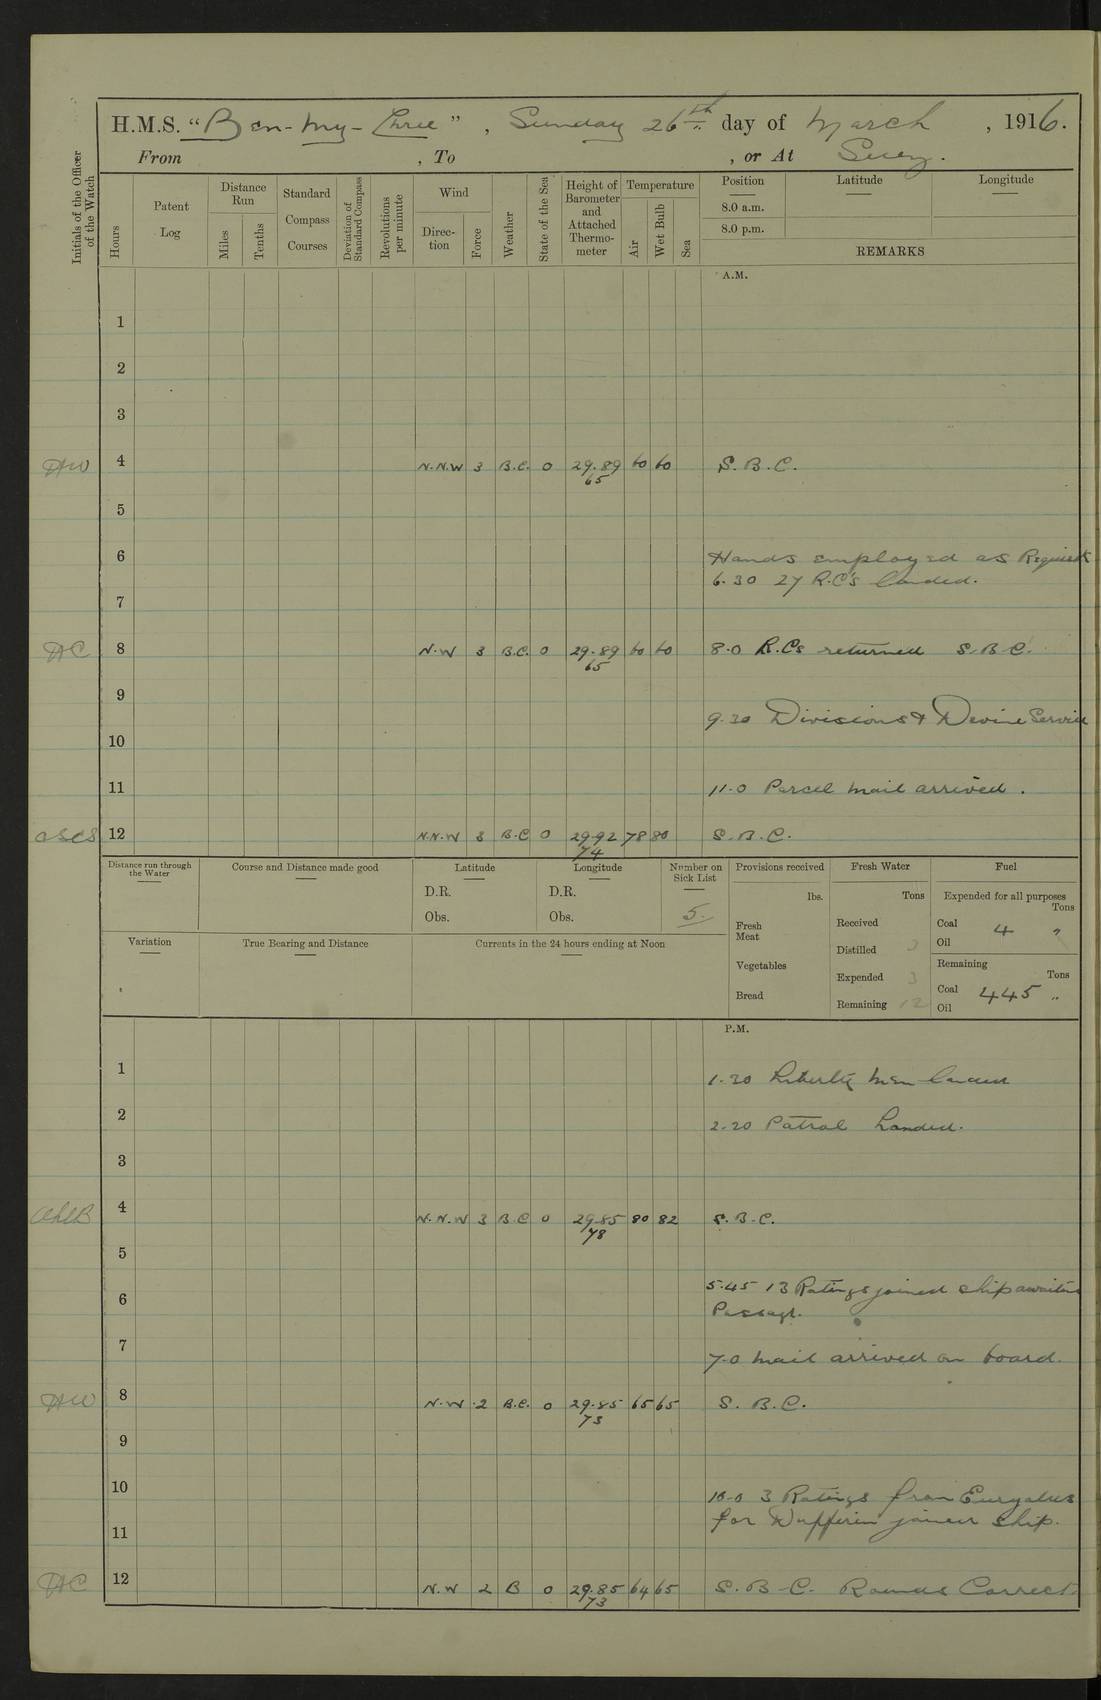 H.M.S. "Ben-my-Chree", Sunday 26th day of March, 1916.
From , To , or At Suez.
Initials of the Officer of the Watch
Hours
Patent Log
Distance Run
Miles
Tenths
Standard Compass Courses
Deviation of Standard Compass
Revolutions per minute
Wind
Direc-tion
Force
Weather
State of the Sea
Height of Barometer and Attached Thermo-meter
Temperature
Air
Wet Bulb
Sea
Position
Latitude
Longitude
8.0 a.m.
8.0 p.m.
REMARKS
A.M.
1
2
3
4 N.N.W 3 B.C. 0 29.89 60 60 S.B.C.
65
5
6 Hands employed as Requisite
6.30 27 R.C's landed.
7
AC 8 N.W 3 B.C. 0 29.89 60 60 8.0 R.Cs returned S.B.C.
65
9
9.30 Divisions & Devine Service
10
11 11.0 Parcel mail arrived.
12 N.N.W 3 B.C 0 29.92 78 80 S.B.C.
74
Distance run through the Water
Course and Distance made good
Latitude
D.R.
Obs.
Longitude
D.R.
Obs.
Number on Sick List
5.
Provisions received
lbs.
Fresh Meat
Vegetables
Bread
Fresh Water
Tons
Received
Distilled
Expended 3
Remaining 12
Fuel
Expended for all purposes
Tons
Coal 4 "
Oil
Remaining
Tons
Coal 445 "
Oil
Variation
True Bearing and Distance
Currents in the 24 hours ending at Noon
P.M.
1 1.30 Liberty men landed
2 2.20 Patrol Landed.
3
4 N.N.W 3 B.C 0 29.85 80 82 S.B.C.
78
5
5.45 13 Ratings joined ship awaiting
6 Passage.
7 7.0 mail arrived on board.
8 N.W 2 B.C. 0 29.85 65 65 S.B.C.
73
9
10 10.0 3 Ratings from Euryalus
for Dufferin joined ship.
11
AC 12 N.W 2 B 0 29.85 64 65 S.B.C. Rounds Correct.
73